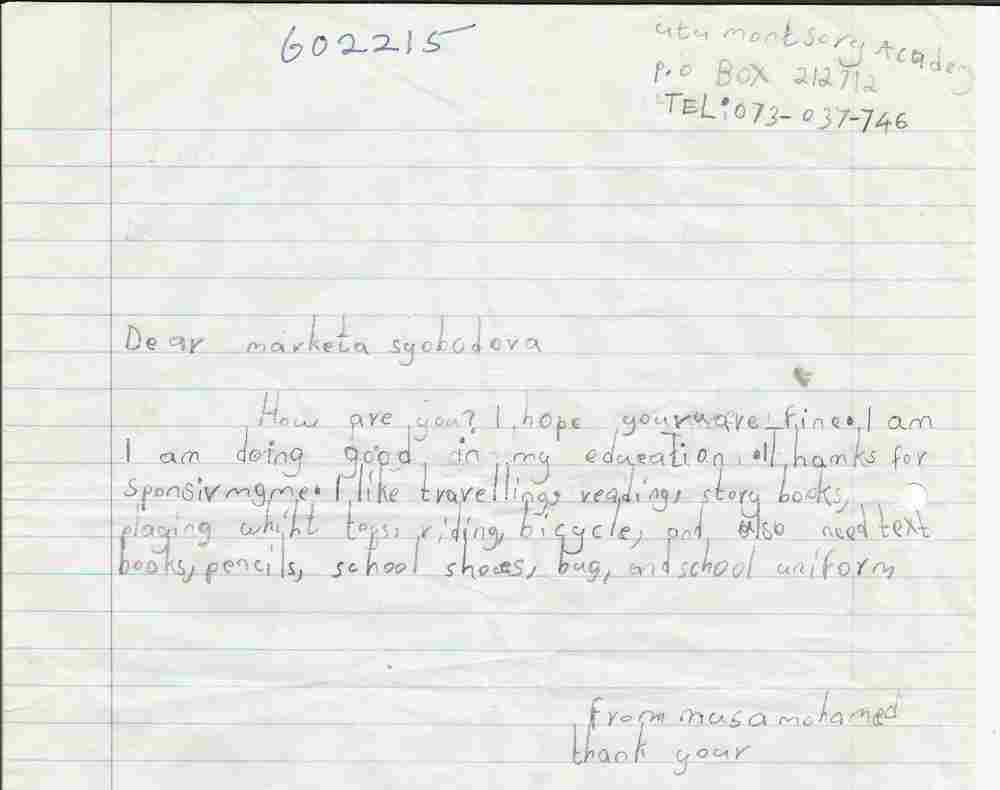 602215
utu montsory Academy
P.O BOX 212712
TEL: 073-037-746
Dear marketa syobodova
How are you? I hope youruare fine. I am
I am doing good in my education. Thanks for
sponsirmgme. I like travelling, reading, story books,
playing whiht tops, riding, bicycle, and also need text
books, pencils, school shoes, bag, and school uniform
from musa mohamed
thank your